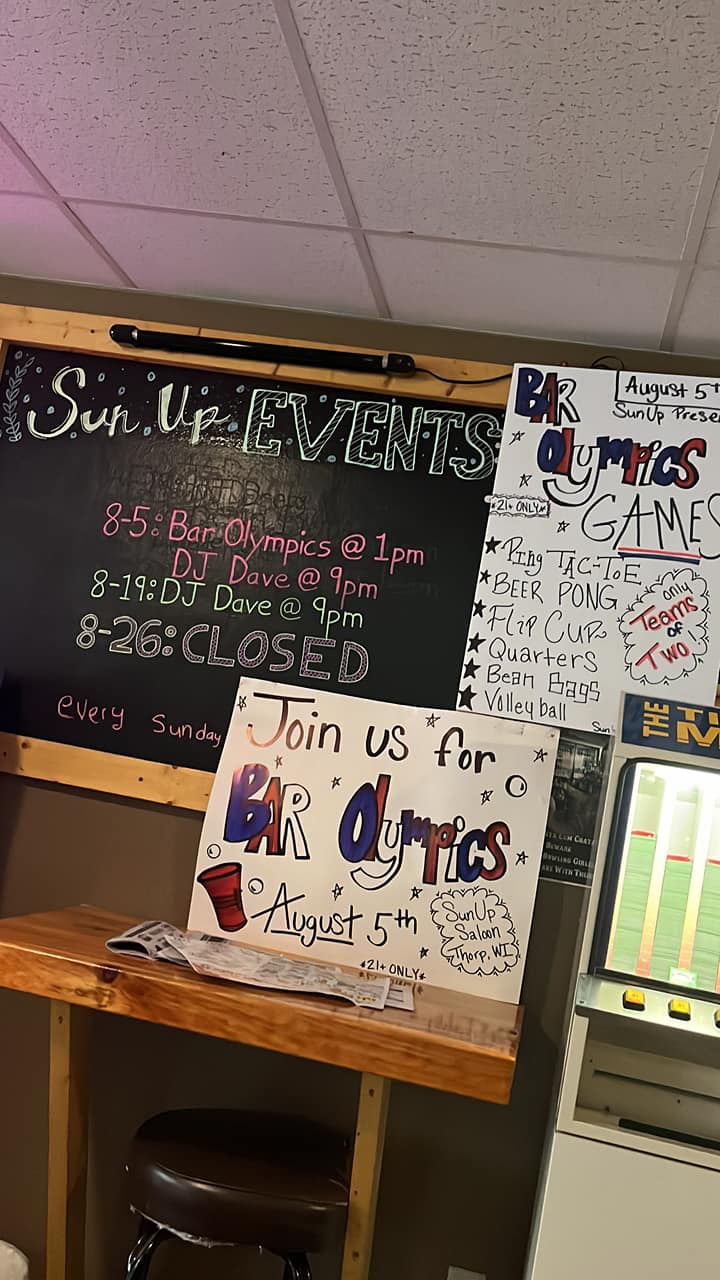 Sun Up EVENTS
8-5: Bar Olympics @ 1pm
DJ Dave @ 9pm
8-19: DJ Dave @ 9pm
8-26: CLOSED
every Sunday
BAR
August 5
SunUp Prese
Olympics
*21+ ONLY*
GAMES
★ Ping TAC-ToE
★ BEER PONG
★ Flip CUP
★ Quarters
★ Bean Bags
★ Volleyball
only
Teams
of
Two!
Sun
Join us for
BAR Olympics
August 5th
SunUp
Saloon
Thorp, WI
*21+ ONLY*
THE
BEWARE